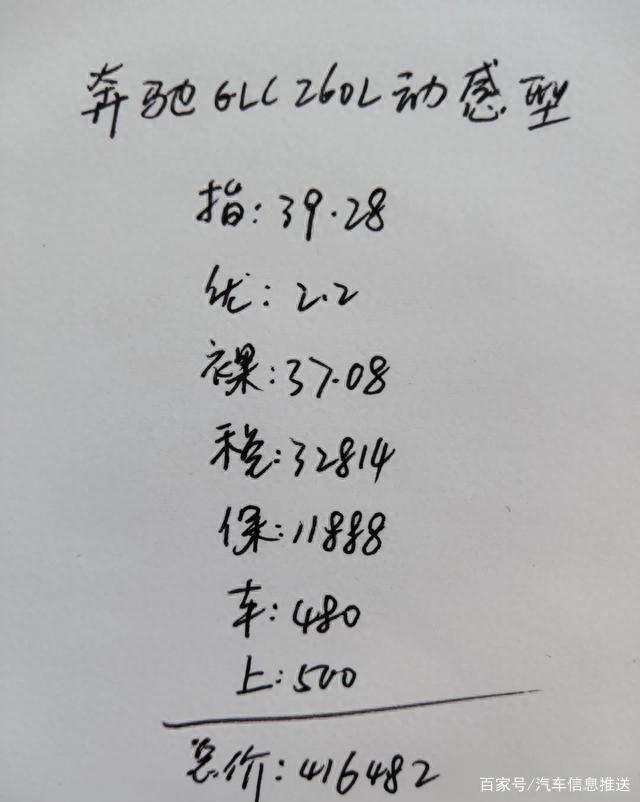 奔驰GLC260L动感型
指:39.28
优:2.2
裸:37.08
税:32814
保:11888
车:480
上:500
总价:416482
百家号/汽车信息推送